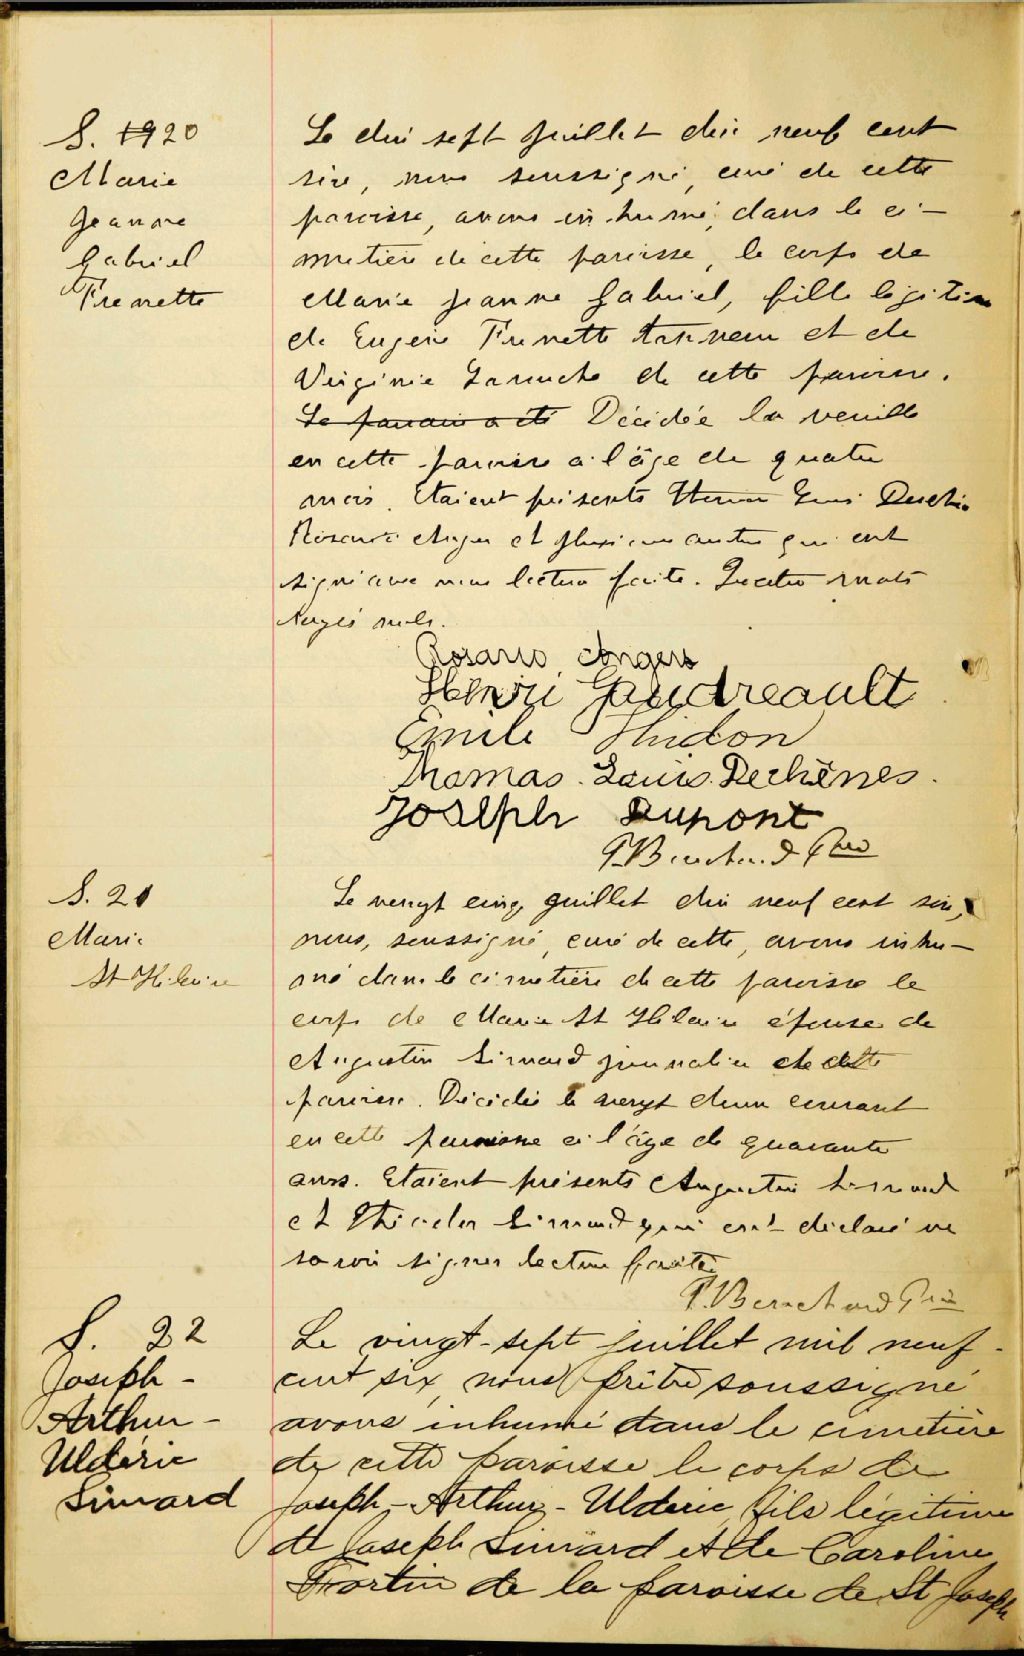 S. 1920
Marie
Jeanne
Gabriel
Frenette
Le dix sept juillet dix neuf cent
six, nous soussigné, curé de cette
paroisse, avons inhumé, dans le ci-
metière de cette paroisse, le corps de
Marie Jeanne Gabriel, fille légitime
de Eugène Frenette tanneur et de
Virginie de cette paroisse.
Le parrain a été Décédée la veuille
en cette paroisse a l'âge de quatre
mois. Etaient présents Louis Deschê
Rosario Anger et plusieurs autres qui ont
signé avec nous lecture faite. Quatre mots
rayés nuls.
Rosario Angers
Henri Gaudreault
Emile Hudon
Thomas. Louis. Dechênes.
Joseph Dupont
P. Bouchard Ptre
S. 21
Marie
St-Hilaire
Le vengt cinq juillet dix neuf cent six,
nous, soussigné, curé de cette, avons inhu-
mé dans le cimetière de cette paroisse le
corps de Marie St Hilaire épouse de
Augustin Simard journalier de cette
paroisse. Décédée le vengt deux courant
en cette paroisse a l'âge de quarante
ans. Etaient présents Augustin Simard
et Simard qui ont déclaré ne
savoir signer lecture faite
P. Bouchard Ptre
S. 22
Joseph-
Arthur-
Ulderic
Simard
Le vingt-sept juillet mil neuf-
cent six, nous prêtre soussigné
avons inhumé dans le cimetière
de cette paroisse le corps de
Joseph-Arthur-Ulderic, fils légitime
de Joseph Simard et de Caroline
Fortin de la paroisse de St Joseph